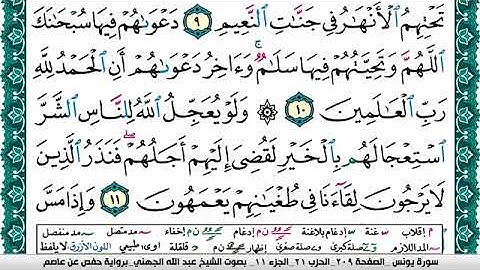 تَحۡتِهِمُ ٱلۡأَنۡهَٰرُ فِي جَنَّٰتِ ٱلنَّعِيمِ ٩ دَعۡوَىٰهُمۡ فِيهَا سُبۡحَٰنَكَ
ٱللَّهُمَّ وَتَحِيَّتُهُمۡ فِيهَا سَلَٰمٞۚ وَءَاخِرُ دَعۡوَىٰهُمۡ أَنِ ٱلۡحَمۡدُ لِلَّهِ
رَبِّ ٱلۡعَٰلَمِينَ ١٠ ۞ وَلَوۡ يُعَجِّلُ ٱللَّهُ لِلنَّاسِ ٱلشَّرَّ
ٱسۡتِعۡجَالَهُم بِٱلۡخَيۡرِ لَقُضِيَ إِلَيۡهِمۡ أَجَلُهُمۡۖ فَنَذَرُ ٱلَّذِينَ
لَا يَرۡجُونَ لِقَآءَنَا فِي طُغۡيَٰنِهِمۡ يَعۡمَهُونَ ١١ وَإِذَا مَسَّ
م إقلاب غنة إدغام بلاغنة ن م إدغام ن م إخفاء مد متصل مد منفصل
المد اللازم صلة كبرى وصلة صغرى إظهار ن م قلقلة اوى، طبيعي اللون الأزرق لا يلفظ
سورة يونس . الصفحة ٢٠٩ . الحزب ٢١ . الجزء ١١ . بصوت الشيخ عبد الله الجهني . برواية حفص عن عاصم